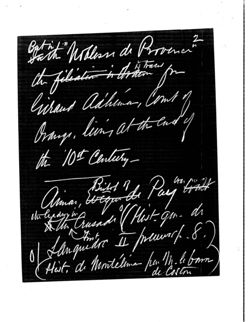 2
But in "Noblesse de Provence"
the filiation is traced from
Giraud Adhémar, Count of
Orange, living at the end of
the 10th Century_
Aimar, Bishop of Puy was
the leader in
the Crusade (Hist. gén. de
Languedoc II preuves p. 8.)
(Hist. de Montélimar par M. le baron
de Coston